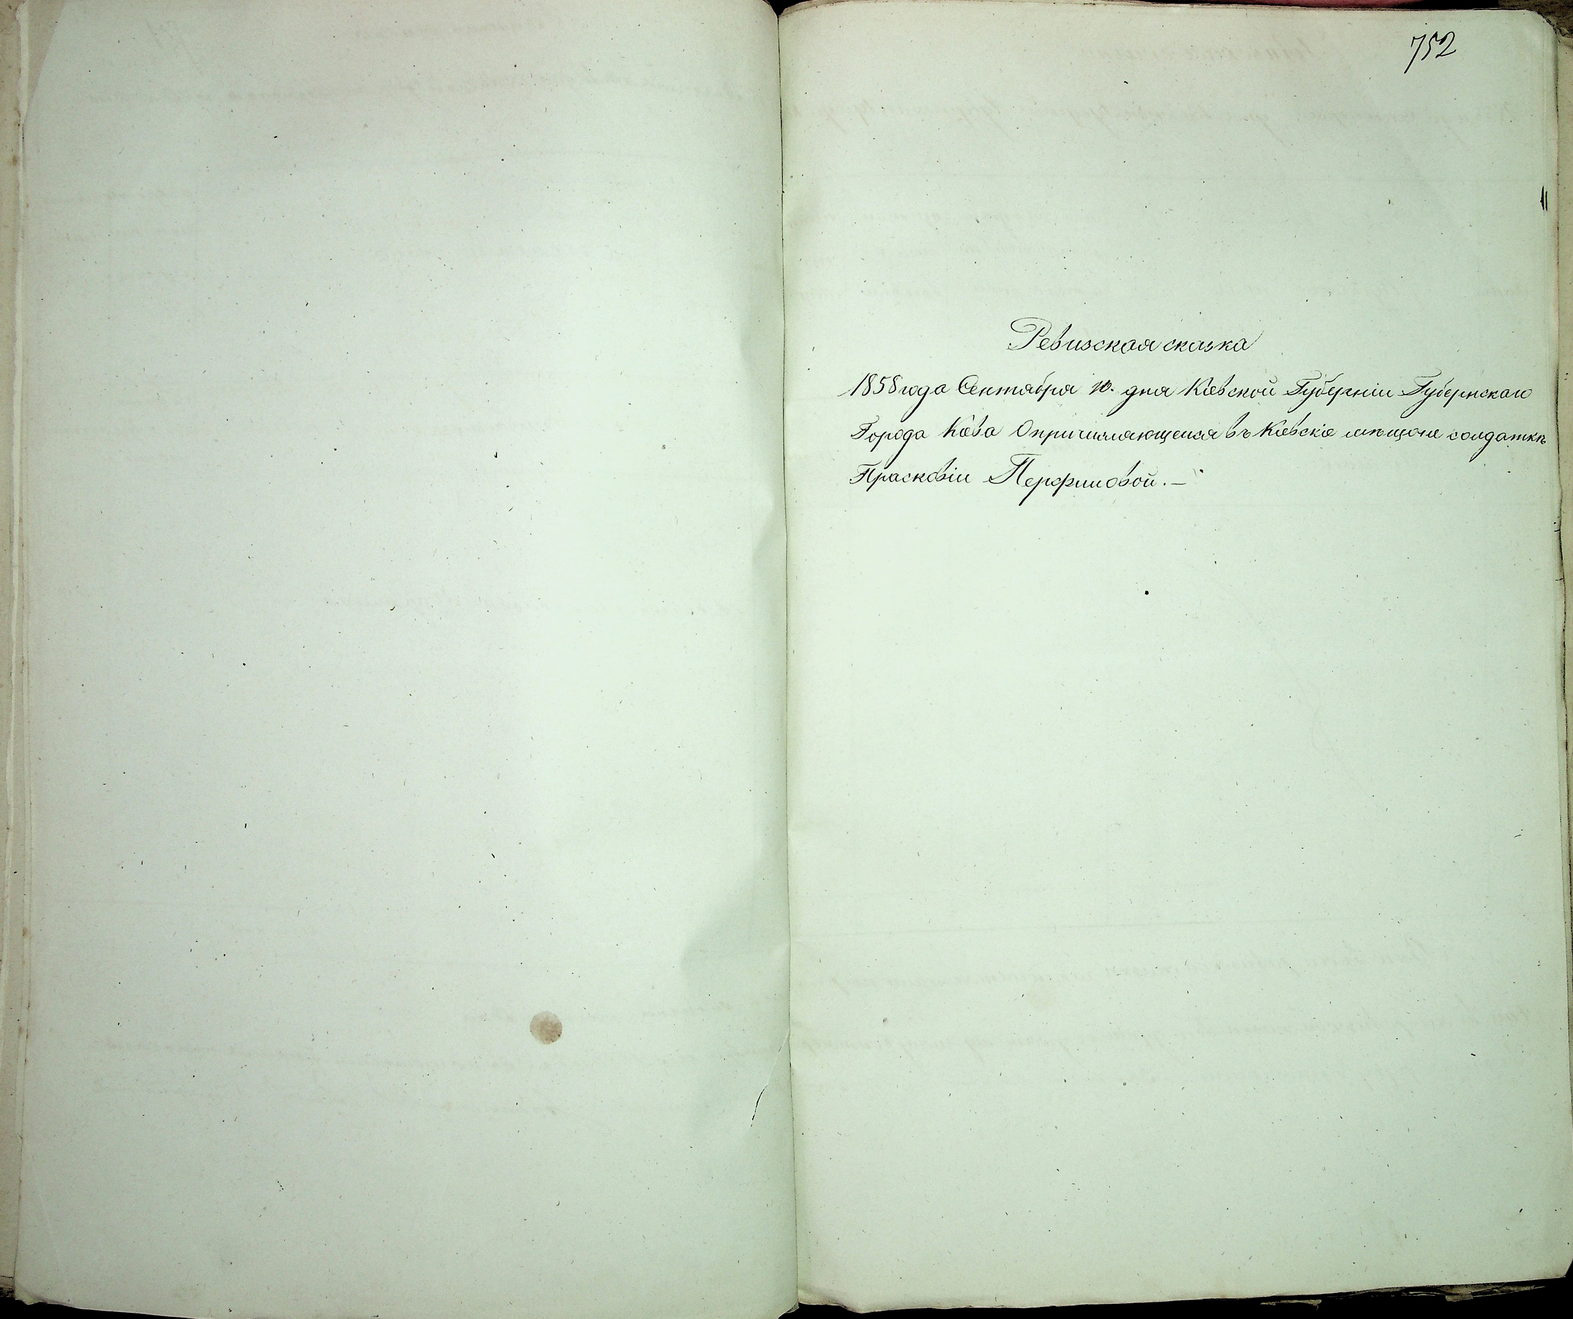 752
Ревизская сказка
1858 года Сентября 10. дня Кіевской Губерніи Губернскаго
Города Кіева О причисляющейся въ Кіевскіе мѣщане солдаткѣ
Прасковіи Перфиловой. —